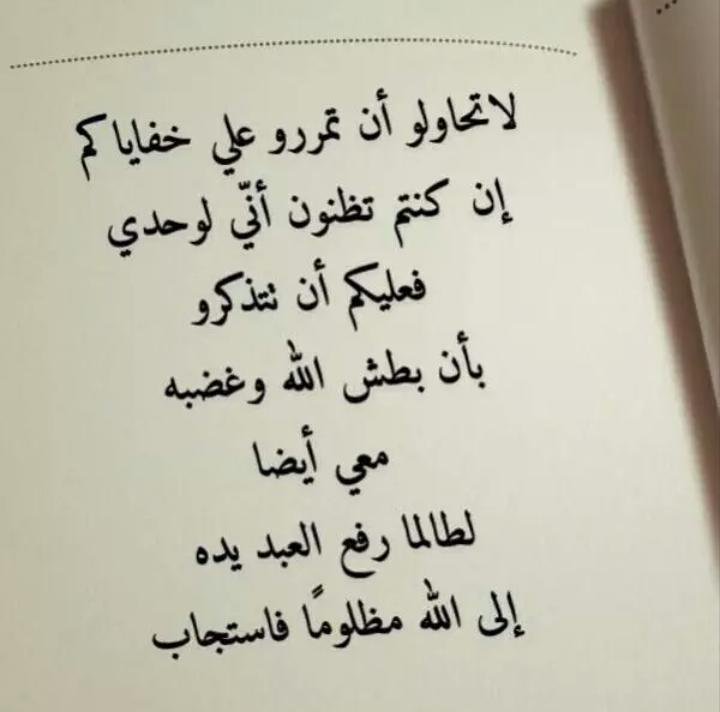 لاتحاولو أن تمررو علي خفاياكم
إن كنتم تظنون أنّي لوحدي
فعليكم أن تتذكرو
بأن بطش الله وغضبه
معي أيضا
لطالما رفع العبد يده
إلى الله مظلومًا فاستجاب